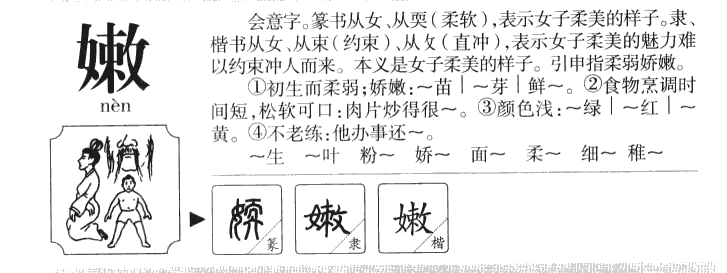 嫩
nèn
会意字。篆书从女、从耎(柔软),表示女子柔美的样子。隶、
楷书从女、从束(约束)、从攵(直冲),表示女子柔美的魅力难
以约束冲人而来。本义是女子柔美的样子。引申指柔弱娇嫩。
①初生而柔弱;娇嫩:～苗｜～芽｜鲜～。②食物烹调时
间短,松软可口:肉片炒得很～。③颜色浅:～绿｜～红｜～
黄。④不老练:他办事还～。
～生 ～叶 粉～ 娇～ 面～ 柔～ 细～ 稚～
篆
嫩 隶
嫩 楷